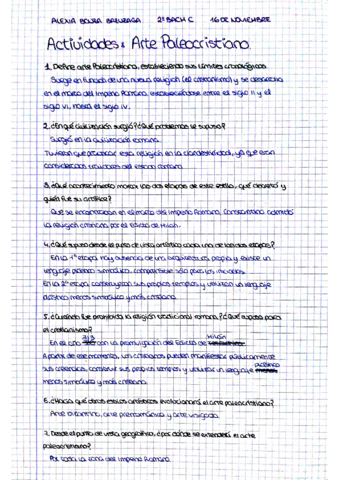 ALEXIA BOLEA 2º BACH C 16 DE NOVIEMBRE
Actividades Arte Paleocristiano
1. Define arte Paleocristiano, estableciendo sus límites cronológicos
Surge en función de una nueva religión (el cristianismo) y se desarrolla
en el marco del Imperio Romano, estableciéndose entre el siglo II y el
siglo VI, hasta el siglo IV.
2. ¿En qué civilización surgió? ¿Qué problemas le supuso?
Surgió en la civilización romana.
Tuvieron que practicar esta religión en la clandestinidad, ya que eran
considerados traidores del estado romano.
3. ¿Qué acontecimiento marca las dos etapas de este estilo, qué decretó y
quién fue su artífice?
Que se encontraban en el marco del Imperio Romano, Constantino admitió
la religión cristiana por el Edicto de Milán.
4. ¿Qué supuso desde el punto de vista artístico cada una de las dos etapas?
En la 1ª etapa hay ausencia de una arquitectura propia y existe un
lenguaje plástico simbólico, comprensible sólo para los iniciados.
En la 2ª etapa construyeron sus propios templos y utilizan un lenguaje
plástico menos simbólico y más cristiano.
5. ¿Cuándo fue prohibida la religión tradicional romana, ? ¿Qué supuso para
el cristianismo?
En el año 313 con la promulgación del Edicto de Milán
A partir de ese momento, los cristianos pueden manifestar públicamente
sus creencias, construir sus propios templos y utilizar un lenguaje plástico
menos simbólico y más cristiano.
6. ¿Hacia qué otros estilos artísticos evolucionará el arte paleocristiano?
Arte bizantino, arte prerrománico y arte visigodo.
7. Desde el punto de vista geográfico, ¿por dónde se extenderá el arte
paleocristiano?
Por toda la zona del Imperio Romano.